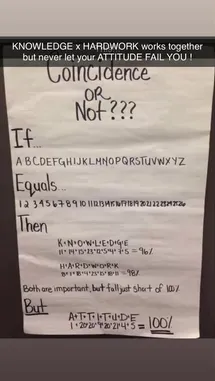 KNOWLEDGE x HARDWORK works together
but never let your ATTITUDE FAIL YOU !
Coincidence
OR
Not???
If...
A B C D E F G H I J K L M N O P Q R S T U V W X Y Z
Equals...
1 2 3 4 5 6 7 8 9 10 11 12 13 14 15 16 17 18 19 20 21 22 23 24 25 26
Then
K+N+O+W+L+E+D+G+E
11+14+15+23+12+5+4+7+5=96%
H+A+R+D+W+O+R+K
8+1+18+4+23+15+18+11=98%
Both are important, but fall just short of 100%
But
A+T+T+I+T+U+D+E
1+20+20+9+20+21+4+5=100%